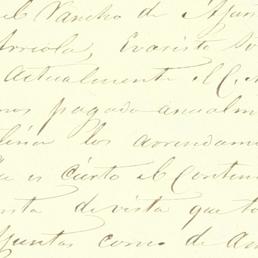 el Rancho de Ajun
Arriola, Evaristo
Actualmente el C.
pagado anualm
los arrendam
es cierto el Conten
de vista que to
Ajuntas como de